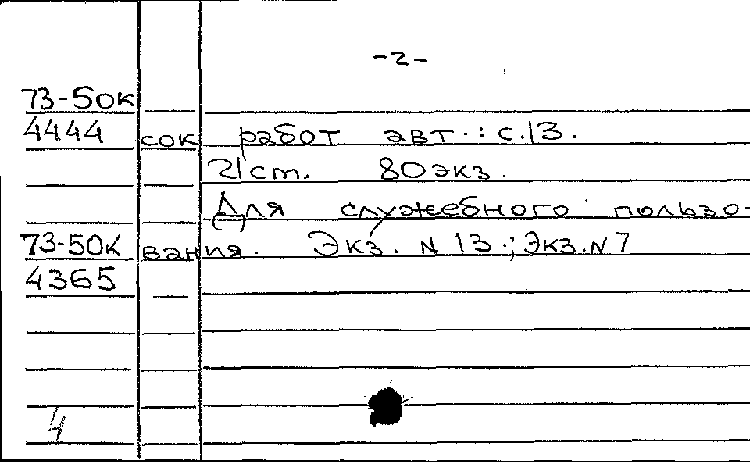 -2-
73-50к
4444 сок работ авт.: с.13.
21 ст. 80 экз.
Для служебного пользо-
73-50К вания. Экз. N 13.; Экз. N 7
4365
4